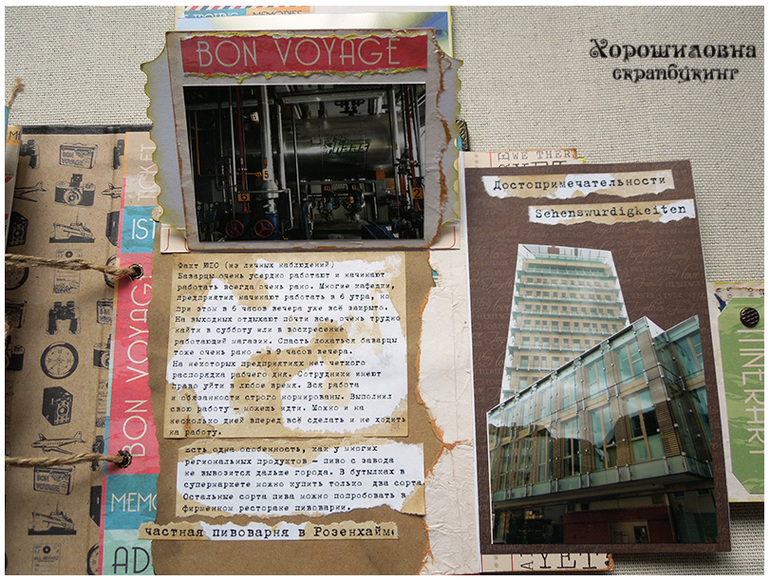 TROTRO
MEMORIES
BON VOYAGE
Хорошиловна
скрапбукинг
WE THER
Достопримечательности
Sehenswurdigkeiten
TICKET
IST
BON VOYAGE
MEMO
AD
Факт №10 (из личных наблюдений)
Баварцы очень усердно работают и начинают
работать всегда очень рано. Многие кафедри,
предприятия начинают работать в 6 утра, но
при этом в 6 часов вечера уже всё закрыто.
На выходных отдыхают почти все, очень трудно
найти в субботу или в воскресение
работающий магазин. Спасть ложаться баварцы
тоже очень рано - в 9 часов вечера.
На некоторых предприятиях нет четкого
распорядка рабочего дня. Сотрудники имеют
право уйти в любое время. Вся работа
и обязанности строго нормированы. Выполнил
свою работу - можешь идти. Можно и на
несколько дней вперед всё сделать и не ходить
на работу.
Есть одна особенность, как у многих
региональных продуктов - пиво с завода
не вывозится дальше города. В бутылках в
супермаркете можно купить только два сорта.
Остальные сорта пива можно попробовать в
фирменном ресторане пивоварни.
частная пивоварня в Розенхайме
ITINERARY
YET